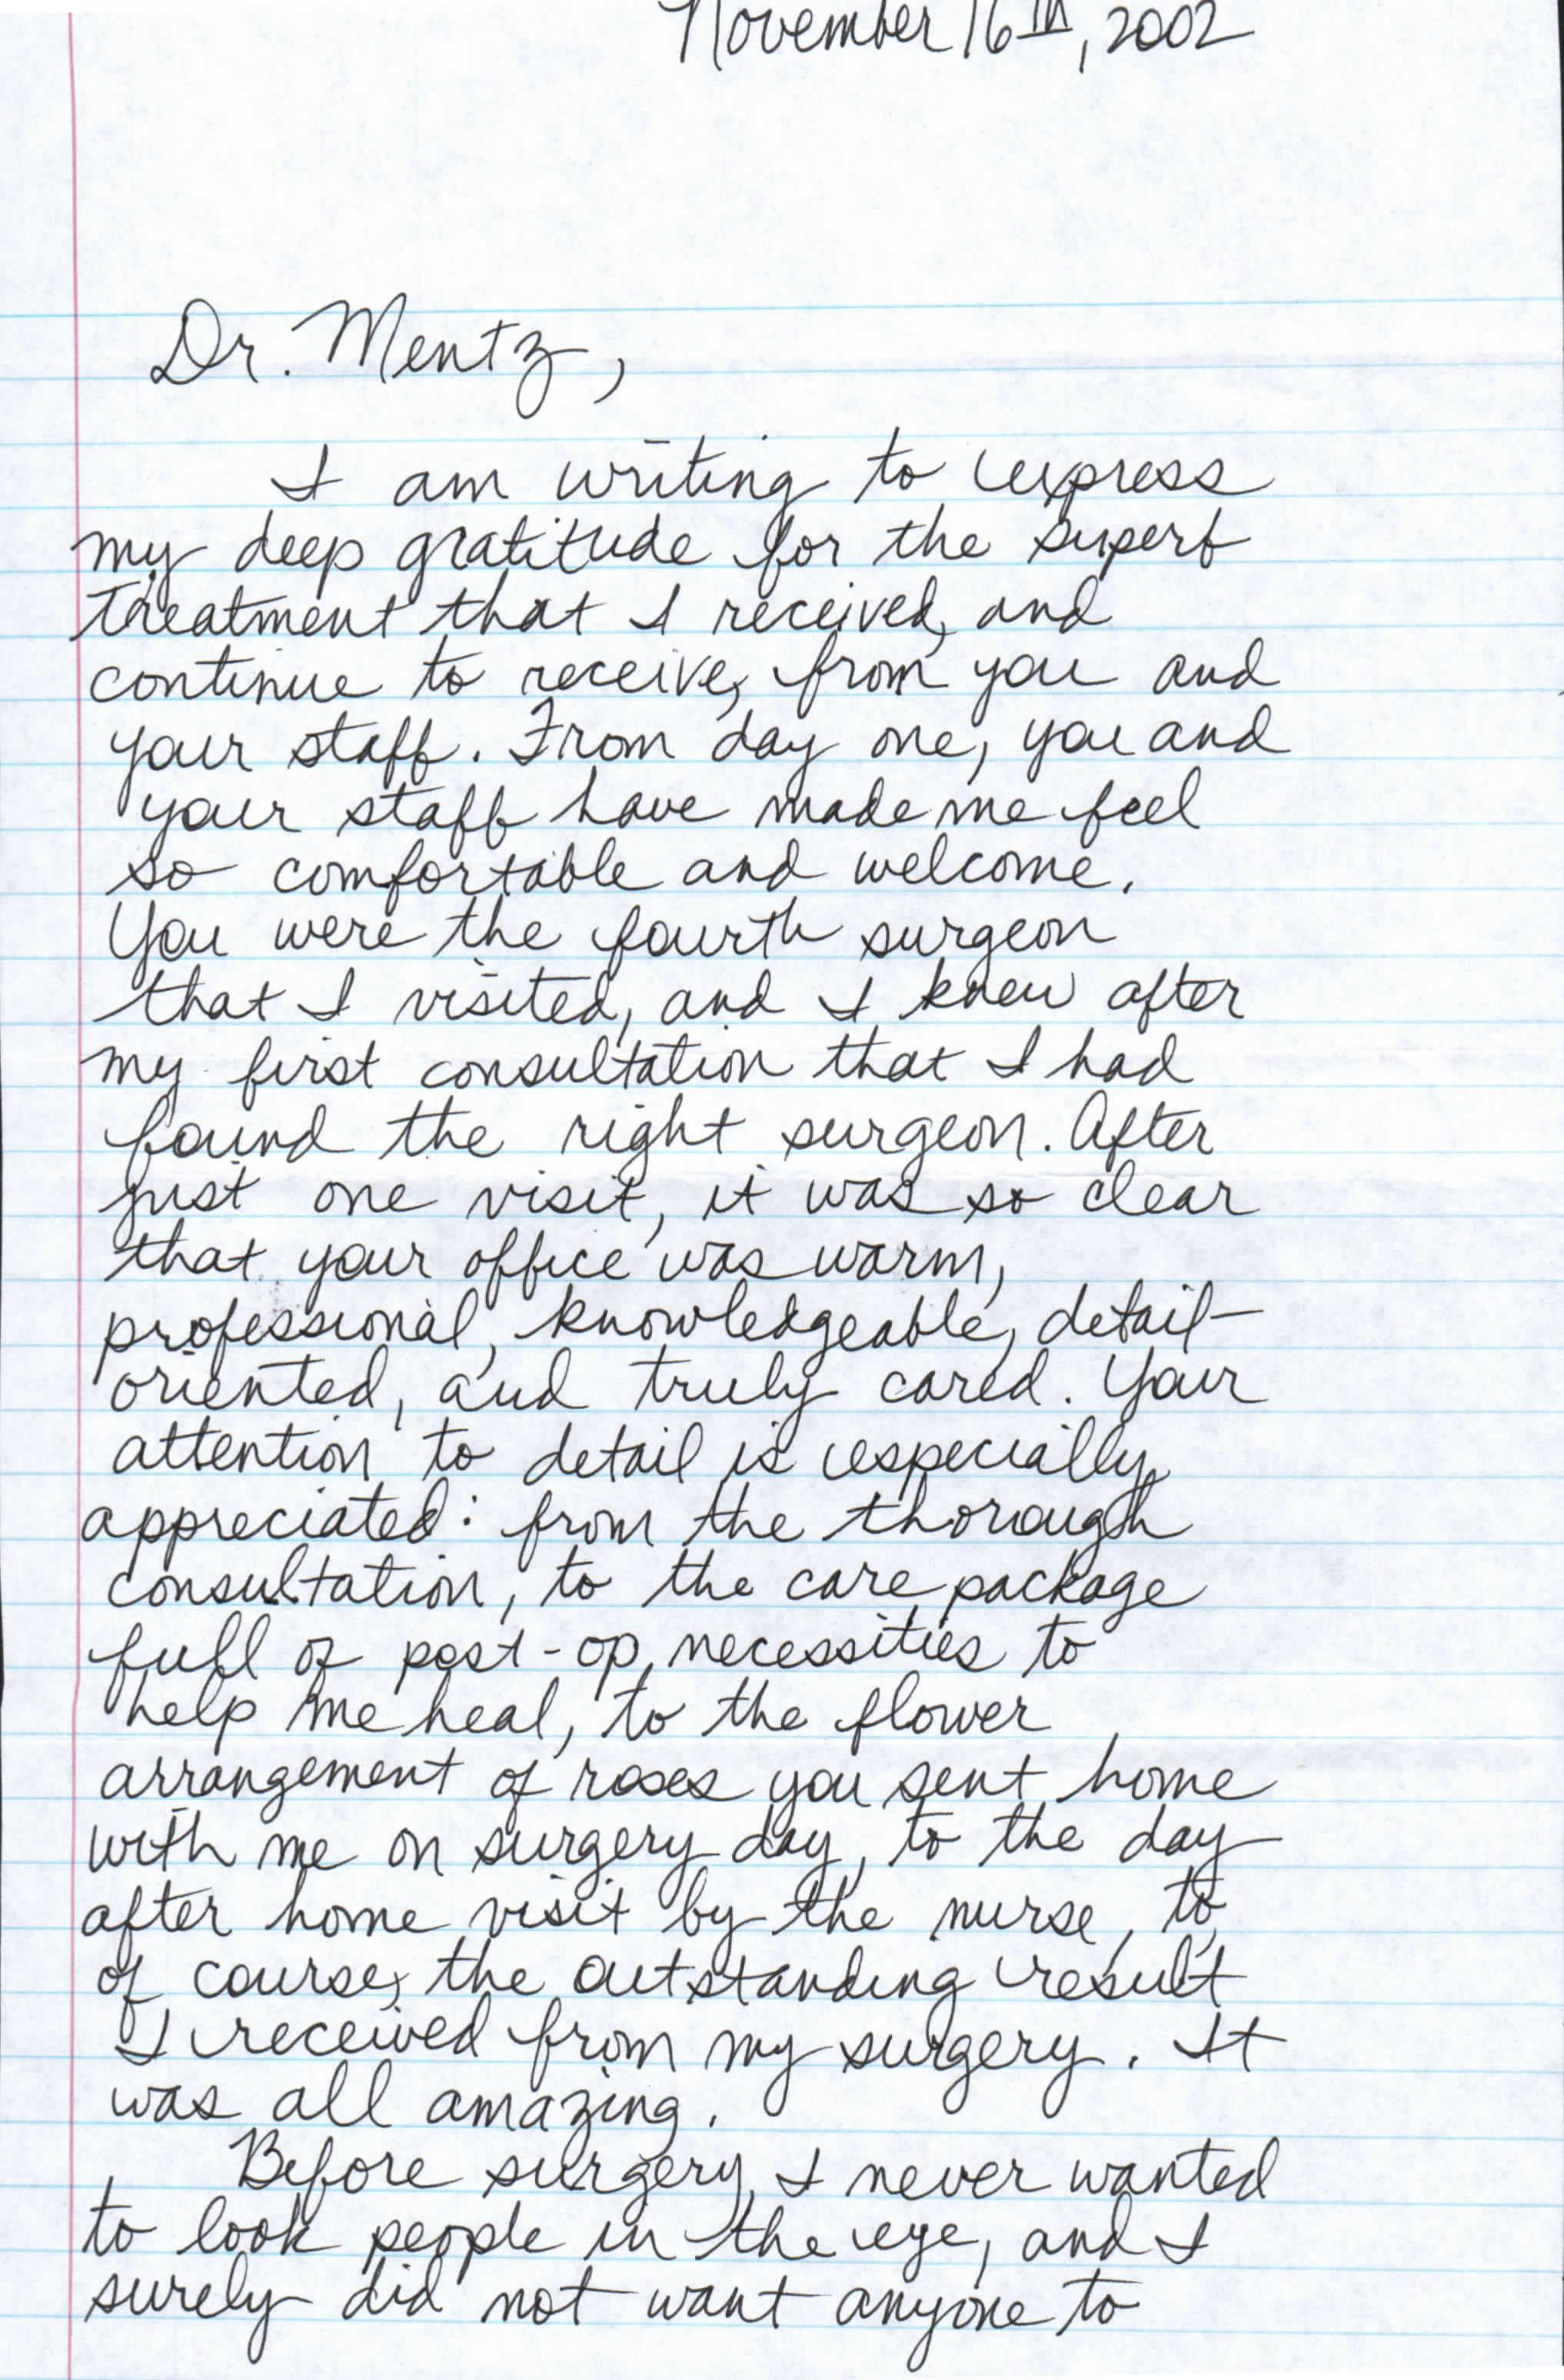 November 16th, 2002
Dr. Mentz,
I am writing to express
my deep gratitude for the superb
treatment that I received, and
continue to receive, from you and
your staff. From day one, you and
your staff have made me feel
so comfortable and welcome.
You were the fourth surgeon
that I visited, and I knew after
my first consultation that I had
found the right surgeon. After
just one visit, it was so clear
that your office was warm,
professional, knowledgeable, detail-
oriented, and truly cared. Your
attention to detail is especially
appreciated: from the thorough
consultation, to the care package
full of post-op necessities to
help me heal, to the flower
arrangement of roses you sent home
with me on surgery day, to the day
after home visit by the nurse, to,
of course, the outstanding result
I received from my surgery. It
was all amazing.
Before surgery, I never wanted
to look people in the eye, and I
surely did not want anyone to